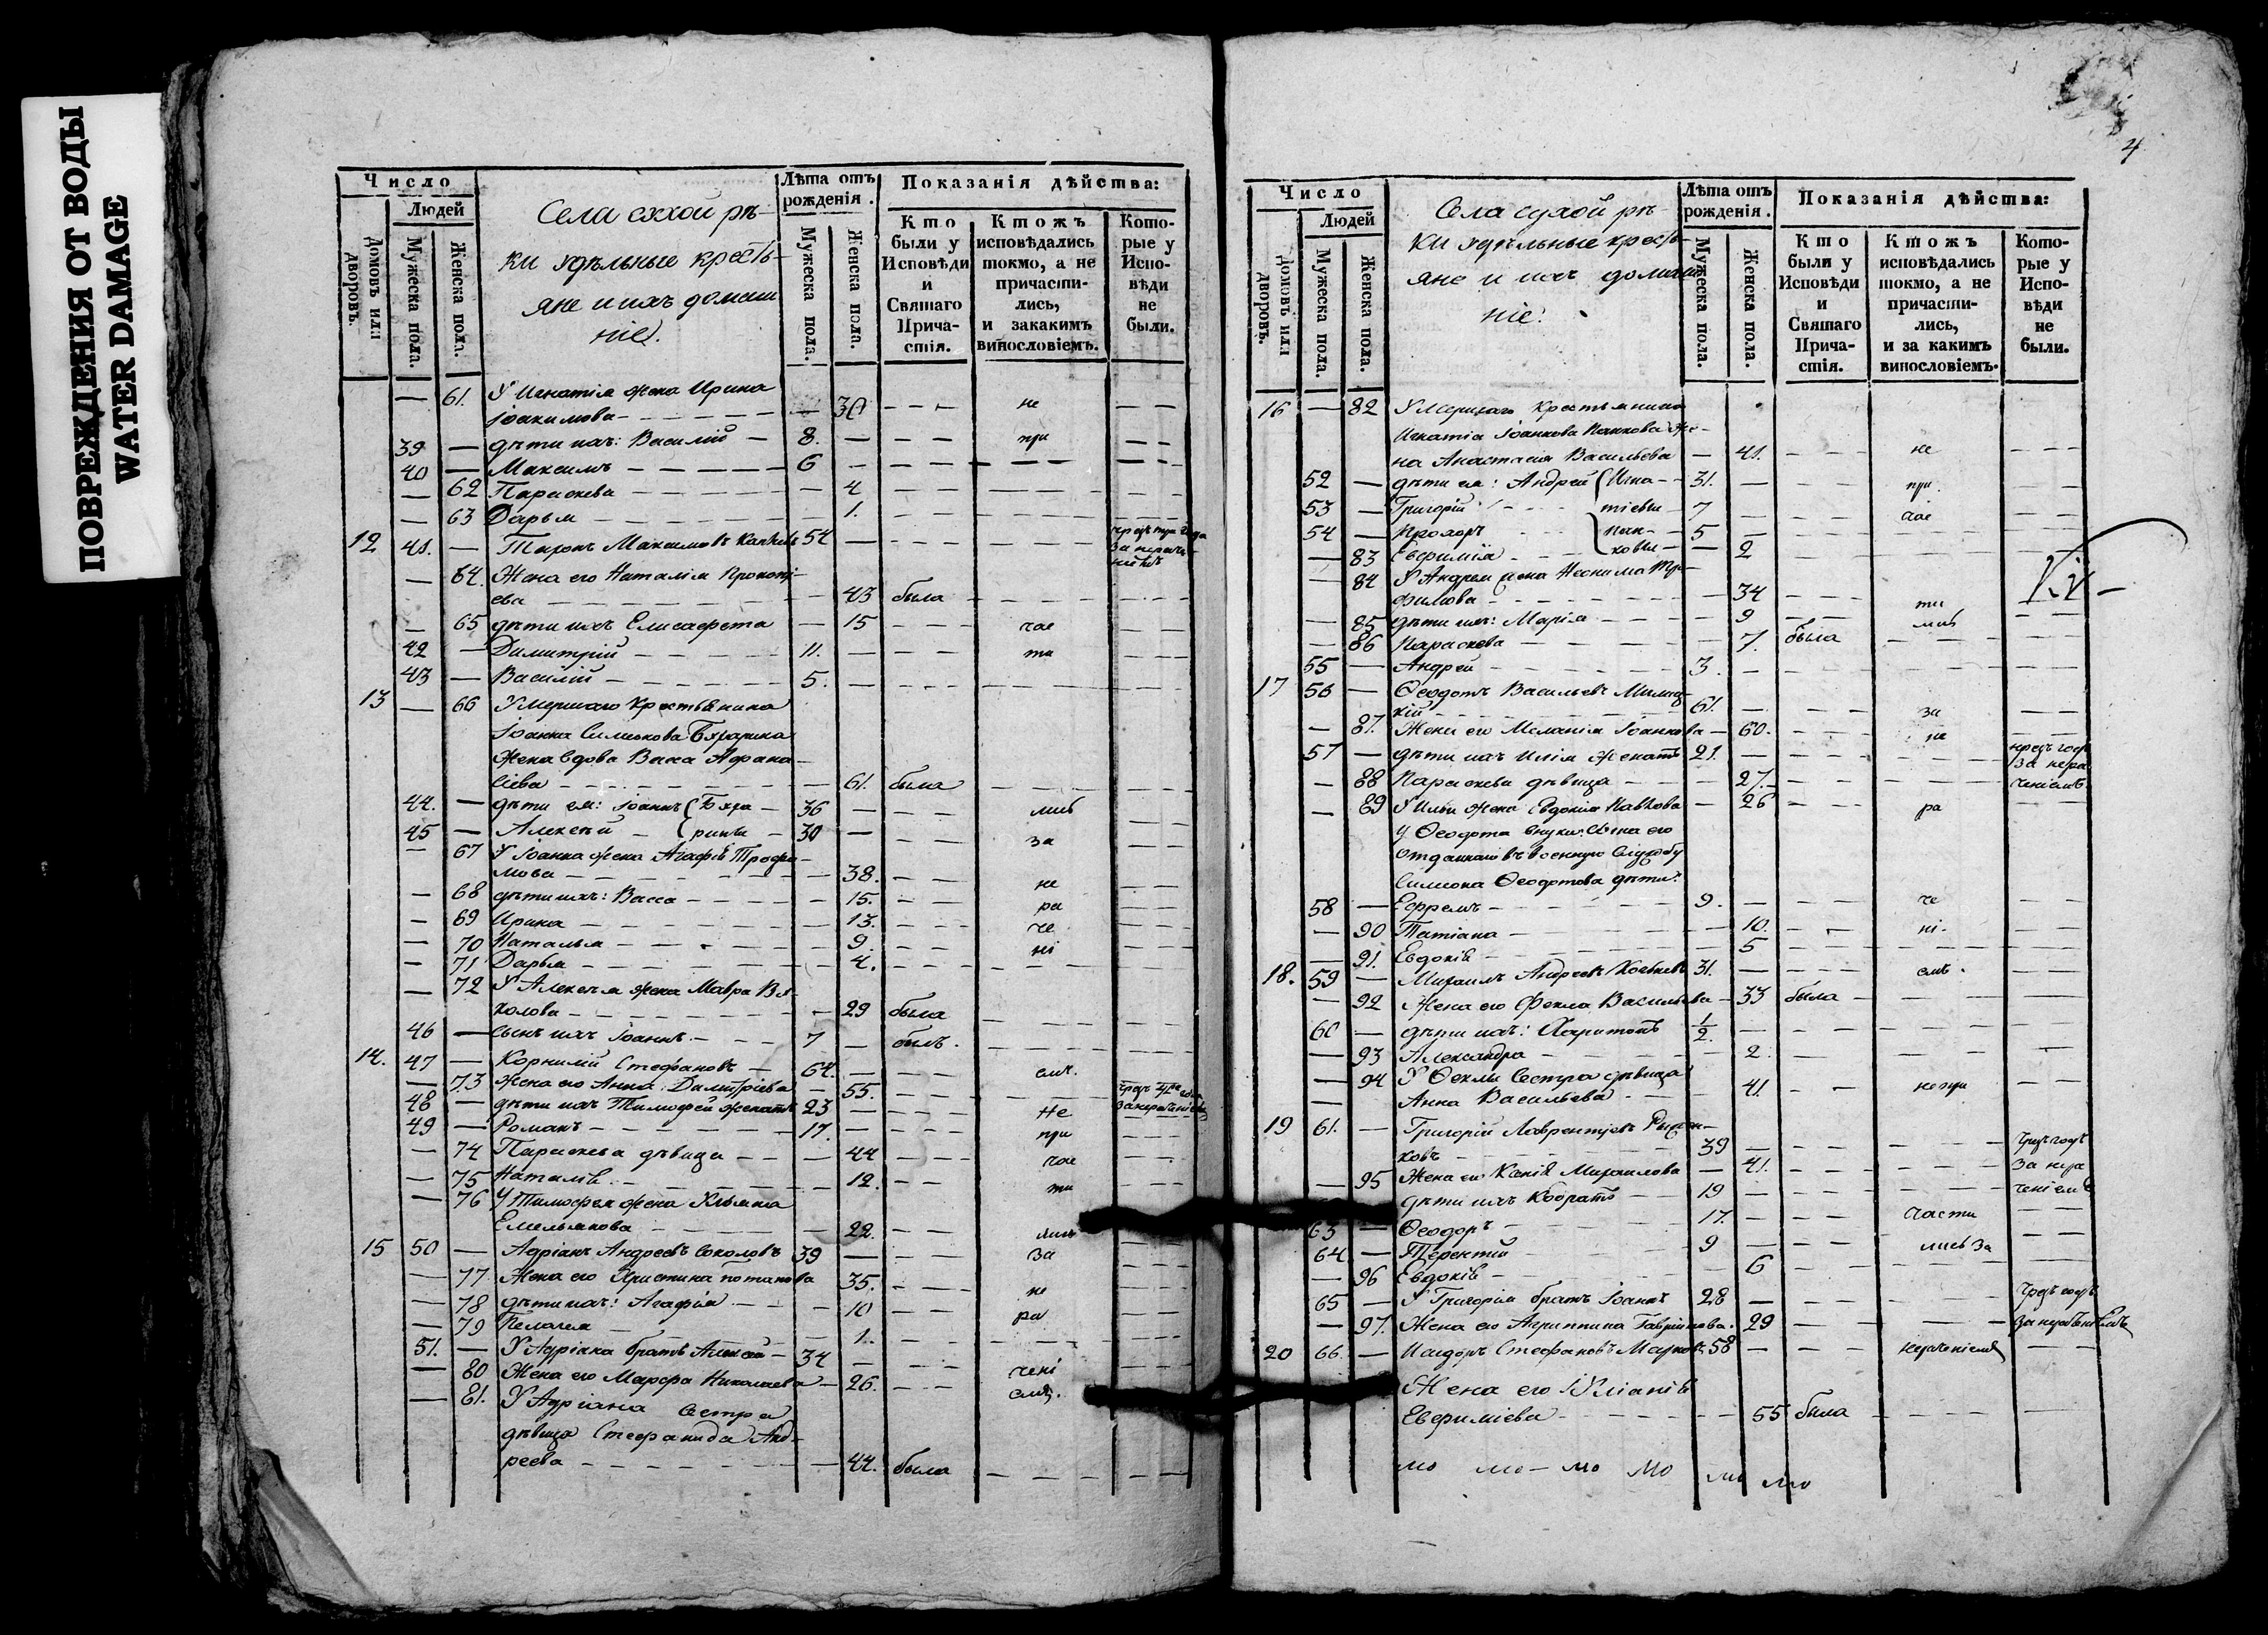 ПОВРЕЖДЕНИЯ ОТ ВОДЫ
WATER DAMAGE
Число
Людей
Домовъ или дворовъ.
Мужеска пола.
Женска пола.
Села сухой рѣ-
ки удѣльные кресть-
яне и ихъ домаш
ніе.
Лѣта отъ рожденія.
Мужеска пола.
Женска пола.
Показанія дѣйства:
Кто были у Исповѣди и Святаго Прича-стія.
Ктожъ исповѣдались токмо, а не причасти-лись, и закакимъ винословіемъ.
Кото-рые у Испо-вѣди не были.
— 61. У Игнатія жена Ирина
Іоакимова — 30 не
39 — дѣти ихъ: Василій — 8. при
40 — Максимъ — 6
— 62 Параскева — 4
— 63 Дарья — 1.
12 41. — Тихонъ Максимовъ 54
— 64. Жена его Наталія Прокопі-
ева — 43 была
— 65 дѣти ихъ Елисавета — 15 час
42 — Димитрій — 11. ти
43 — Василій — 5.
13 — 66 Умершаго крестьянина
Іоанна Симеонова
жена вдова Васса Афана-
сіева — 61. была
44. — дѣти ея: Іоаннъ 36 лись
45 — Алексѣй — 30 за
— 67 У Іоанна жена Агафія Трофи-
мова — 38. не
— 68 дѣти ихъ: Васса — 15. ра
— 69 Ирина — 13. че
— 70 Наталья — 9. ні
— 71 Дарья — 4.
— 72 У Алексѣя жена Мавра Ву-
колова — 29 была
46 — сынъ ихъ Іоаннъ — 7 былъ.
14. 47 — Корнилій Стефановъ — 64. емъ.
— 73 жена его Анна Димитріева — 55.
48 — дѣти ихъ Тимофей женатъ 23 не
49 — Романъ — 17. при
— 74 Параскева дѣвица — 44 час
— 75 Наталія — 12. ти
— 76 У Тимофея жена Ульяна
Емельянова — 22. лись
15 50 — Адріанъ Андреевъ Соколовъ 39 за
— 77 Жена его Христина Потапова 35. не
— 78 дѣти ихъ: Агафія — 10 ра
— 79 Пелагея — 1.
51. — У Адріана братъ Алексѣй — 34 чені
— 80 Жена его Марфа Николаева — 26. емъ.
— 81. У Адріана сестра
дѣвица Стефанида Анд-
реева — 44. была
4
Число
Людей
Домовъ или дворовъ.
Мужеска пола.
Женска пола.
Села сухой рѣ-
ки удѣльные кресть-
яне и ихъ домаш
ніе.
Лѣта отъ рожденія.
Мужеска пола.
Женска пола.
Показанія дѣйства:
Кто были у Исповѣди и Святаго Прича-стія.
Ктожъ исповѣдались токмо, а не причасти-лись, и за какимъ винословіемъ.
Кото-рые у Испо-вѣди не были.
16 — 82 Умершаго крестьянина
Игнатія Іоаннова Панкова же-
на Анастасія Васильева — 41. не
52 — дѣти ея: Андрей Игна- 31. при
53 — Григорій тіевы 7 час
54 — Прохоръ Пан- 5
— 83 Евфимія ковы — 2
— 84 У Андрея жена Неонила Тро-
фимова — 34 ти
— 85 дѣти ихъ: Марія — 9 лись
— 86 Параскева — 7. была
55 — Андрей — 3.
17 56 — Ѳеодотъ Васильевъ
кій — 61. за
— 87. Жена его Меланія Іоаннова — 60. не
57 — дѣти ихъ Илія женатъ 21.
— 88 Параскева дѣвица — 27.
— 89 У Иліи жена Евдокія Павлова — 26 ра
У Ѳеодота внуки: сына его
отданнаго въ военную службу
Симеона Ѳеодотова дѣти:
58 — Ефремъ — 9. че
— 90 Татіана — 10. ні
— 91. Евдокія — 5
18. 59 — Михаилъ Андреевъ 31. емъ.
— 92 Жена его Фекла Васильева — 33 была
60 — дѣти ихъ: Харитонъ 1/2.
— 93 Александра — 2.
— 94 У Ѳеклы сестра дѣвица
Анна Васильева — 41. не при
19 61. — Григорій Лаврентьевъ
ковъ — 39
— 95 Жена его Ксенія Михаилова — 41.
дѣти ихъ Кодратъ — 19
63 — Ѳеодоръ — 17. части
64 — Терентій — 9 лись за
— 96 Евдокія — 6
65 — У Григорія братъ Іоаннъ 28
— 97. Жена его Агриппина Гавріилова. 29
20 66. — Исидоръ Стефановъ 58 нераченіемъ
Жена его Уліанія
Евфиміева — 55 была